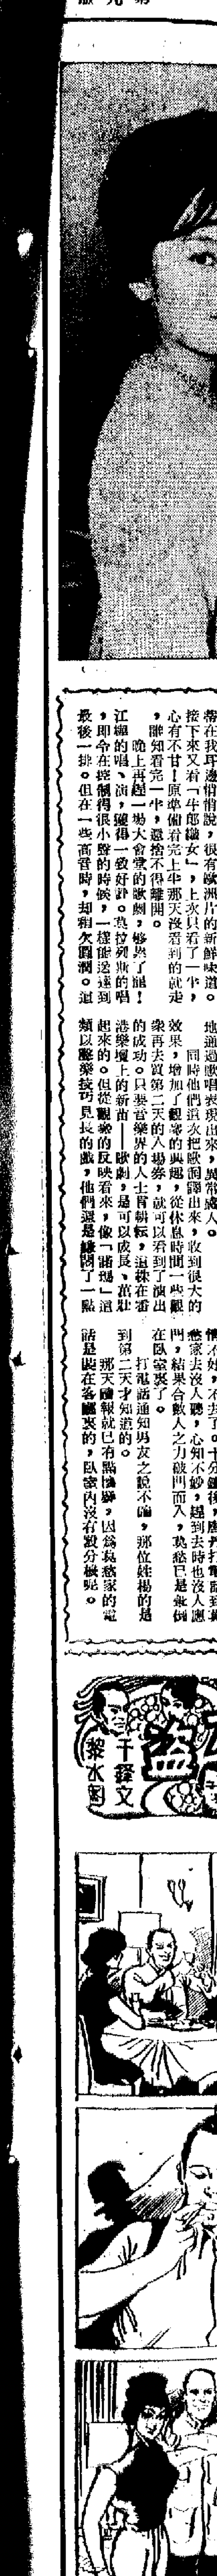 第九版
帶在我耳邊悄悄說,很有歐洲片的新鮮味道。
接下來又看「牛郎織女」,上次只看了一半,
心有不甘!原準備看完上半那天沒看到的就走
,誰知看完一半,還捨不得離開。
晚上再趕一場大會堂的歌劇,夠累了罷!
江樺的唱、演,獲得一致好評。莫拉列斯的唱
,即令在控制得很小聲的時候,一樣能送達到
最後一排。但在一些高音時,却稍欠圓潤。這
地通過歌唱表現出來,異常感人。
同時他們這次把歌詞譯出來,收到很大的
效果,增加了觀衆的興趣,從休息時間一些觀
衆再去買第二天的入場券,就可以看到了演出
的成功。只要音樂界的人士肯耕耘,這株在香
港樂壇上的新苗——歌劇,是可以成長、茁壯
起來的。但從觀衆的反映看來,像「賭場」這
類以聲樂技巧見長的戲,他們還是嫌悶了一點
情不好,不去了。十分鐘後,
愁家去沒人聽,心知不妙,趕到去時也沒人應
門,結果合數人之力破門而入,莫愁已是象倒
在臥室裏了。
打電話通知男友之說不確,那位姓楊的是
到第二天才知道的。
那天晚報就已有點懷疑,因爲莫愁家的電
話是裝在客廳裏的,臥室內沒有裝分機呢。
盜
千擇文
黎水圖